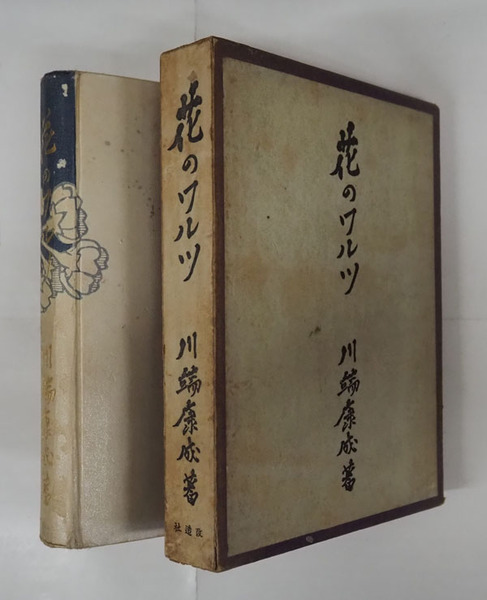 花のワルツ
川端康成著
花のワルツ
川端康成著
改造社
花の
川端康成著